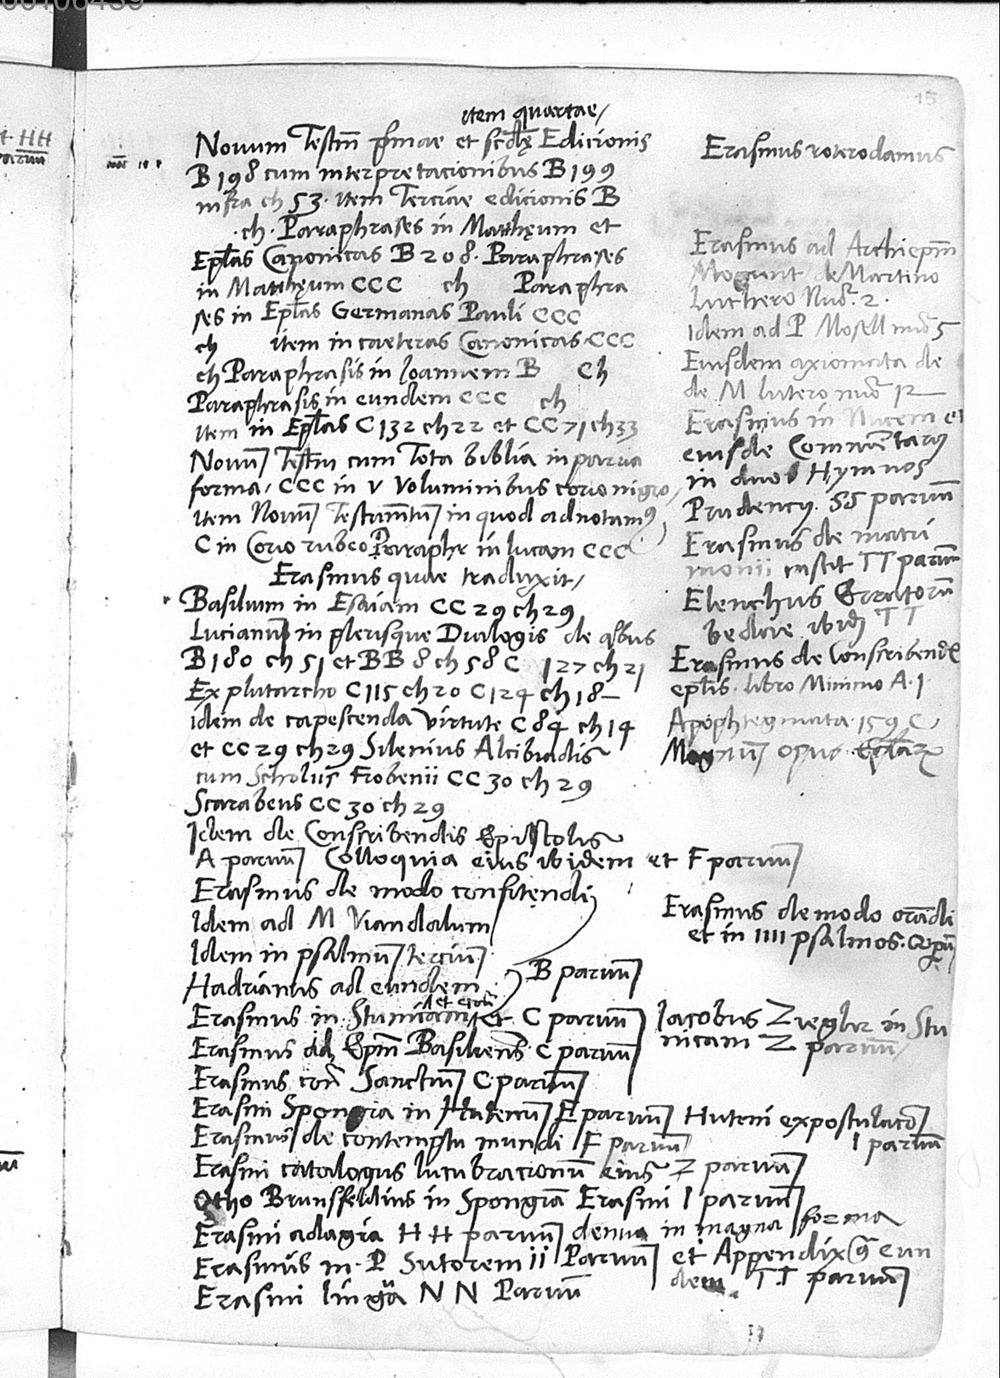 15
item quartae/
Novum Testm̄ p̄mae et scd̄ę Edicionis
B 198 cum interpretacionibus B 199
infra ch 53. item Terciae edicionis B
ch. Paraphrases in Matthęum et
Ep̄las Canonicas B 208. Paraphrases
in Matthęum CCC ch Paraphra
ses in Ep̄las Germanas Pauli CCC
ch item in caeteras Canonicas CCC
ch Paraphrasis in Joannem B Ch
Paraphrasis in eundem CCC ch
Item in Ep̄las C 132 ch 22 et CC 71 ch 33
Novum Testm̄ cum Tota biblia in parva
forma, CCC in v Voluminibus corio nigro/
item Novum Testamentum in quod adnotamus
C in Corio rubeo Paraphr in lucam CCC
Erasmus quae traduxit/
Basilium in Esaiam CC 29 ch 29
Lucianus in plerisque Dialogis de quibus
B 180 ch 51 et BB 8 ch 58 C 127 ch 21
Ex plutarcho C 115 ch 20 C 124 ch 18
Idem de capescenda virtute C 84 ch 14
et CC 29 ch 29 Silenius Alcibiadis
cum Scholiis Frobenii CC 30 ch 29
Scarabeus CC 30 ch 29
Idem de Conscribendis Epistolis
A parvum Colloquia eius ibidem et F parvum
Erasmus de modo confitendi
Idem ad M Viandalum
Idem in psalmum tercium
Hadrianus ad eundem B parvum
Erasmus in Stunicam et C parvum
Erasmus ad Epm̄ Basiliens̄ C parvum
Erasmus con̄ Sanctium C parvum
Erasmi Spongia in Hutenum E parvum Huteni expostulacō
I parvum
Erasmus de contemptu mundi F parvum
Erasmi catalogus lucubracionum eius Z parvum
Otho Brunsfeldius in Spongiā Erasmi I parvum
Erasmi adagia HH parvum denuo in magna forma
Erasmus in P Sutorem ii Parvum et Appendix eun
dem TT parvum
Erasmi lingua NN Parvum
Erasmus roterodamus
Erasmus ad Archiepm̄
Mogunt de Martino
Luthero Nuō. 2.
Idem ad P Mosell nuō 5
Eiusdem axiomata de
de M lutero nuō 12
Erasmus in Nucem et
eiusdē Commentarius
in duos Hymnos
Prudencii SS parvum
Erasmus de matri
monii instit TT parvum
Elenchus Erratorum
bedaie ibidem TT
Erasmus de Conscribendis
eplis. libro Minimo A. 1
Apophtegmata. 159 C
Magnum opus Eplarum
Erasmus de modo orādi
et in IIII psalmos.
Jacobus Ziegler in Stu
nicam Z parvum